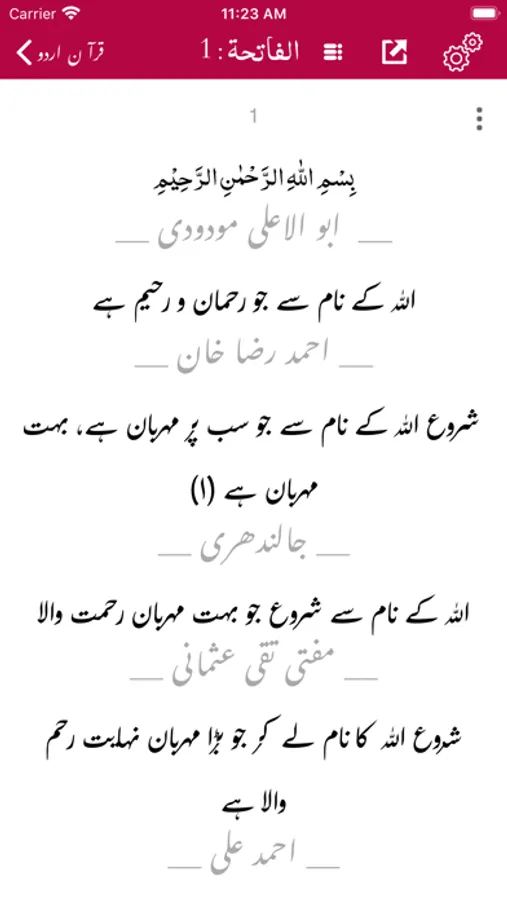 Carrier 11:23 AM
قرآن اردو الفاتحة : 1
1
بِسْمِ اللّٰهِ الرَّحْمٰنِ الرَّحِيْمِ
__ ابو الاعلی مودودی __
اللہ کے نام سے جو رحمان و رحیم ہے
__ احمد رضا خان __
شروع اللہ کے نام سے جو سب پر مہربان ہے، بہت
مہربان ہے (۱)
__ جالندھری __
اللہ کے نام سے شروع جو بہت مہربان رحمت والا
__ مفتی تقی عثمانی __
شروع اللہ کا نام لے کر جو بڑا مہربان نہایت رحم
والا ہے
__ احمد علی __